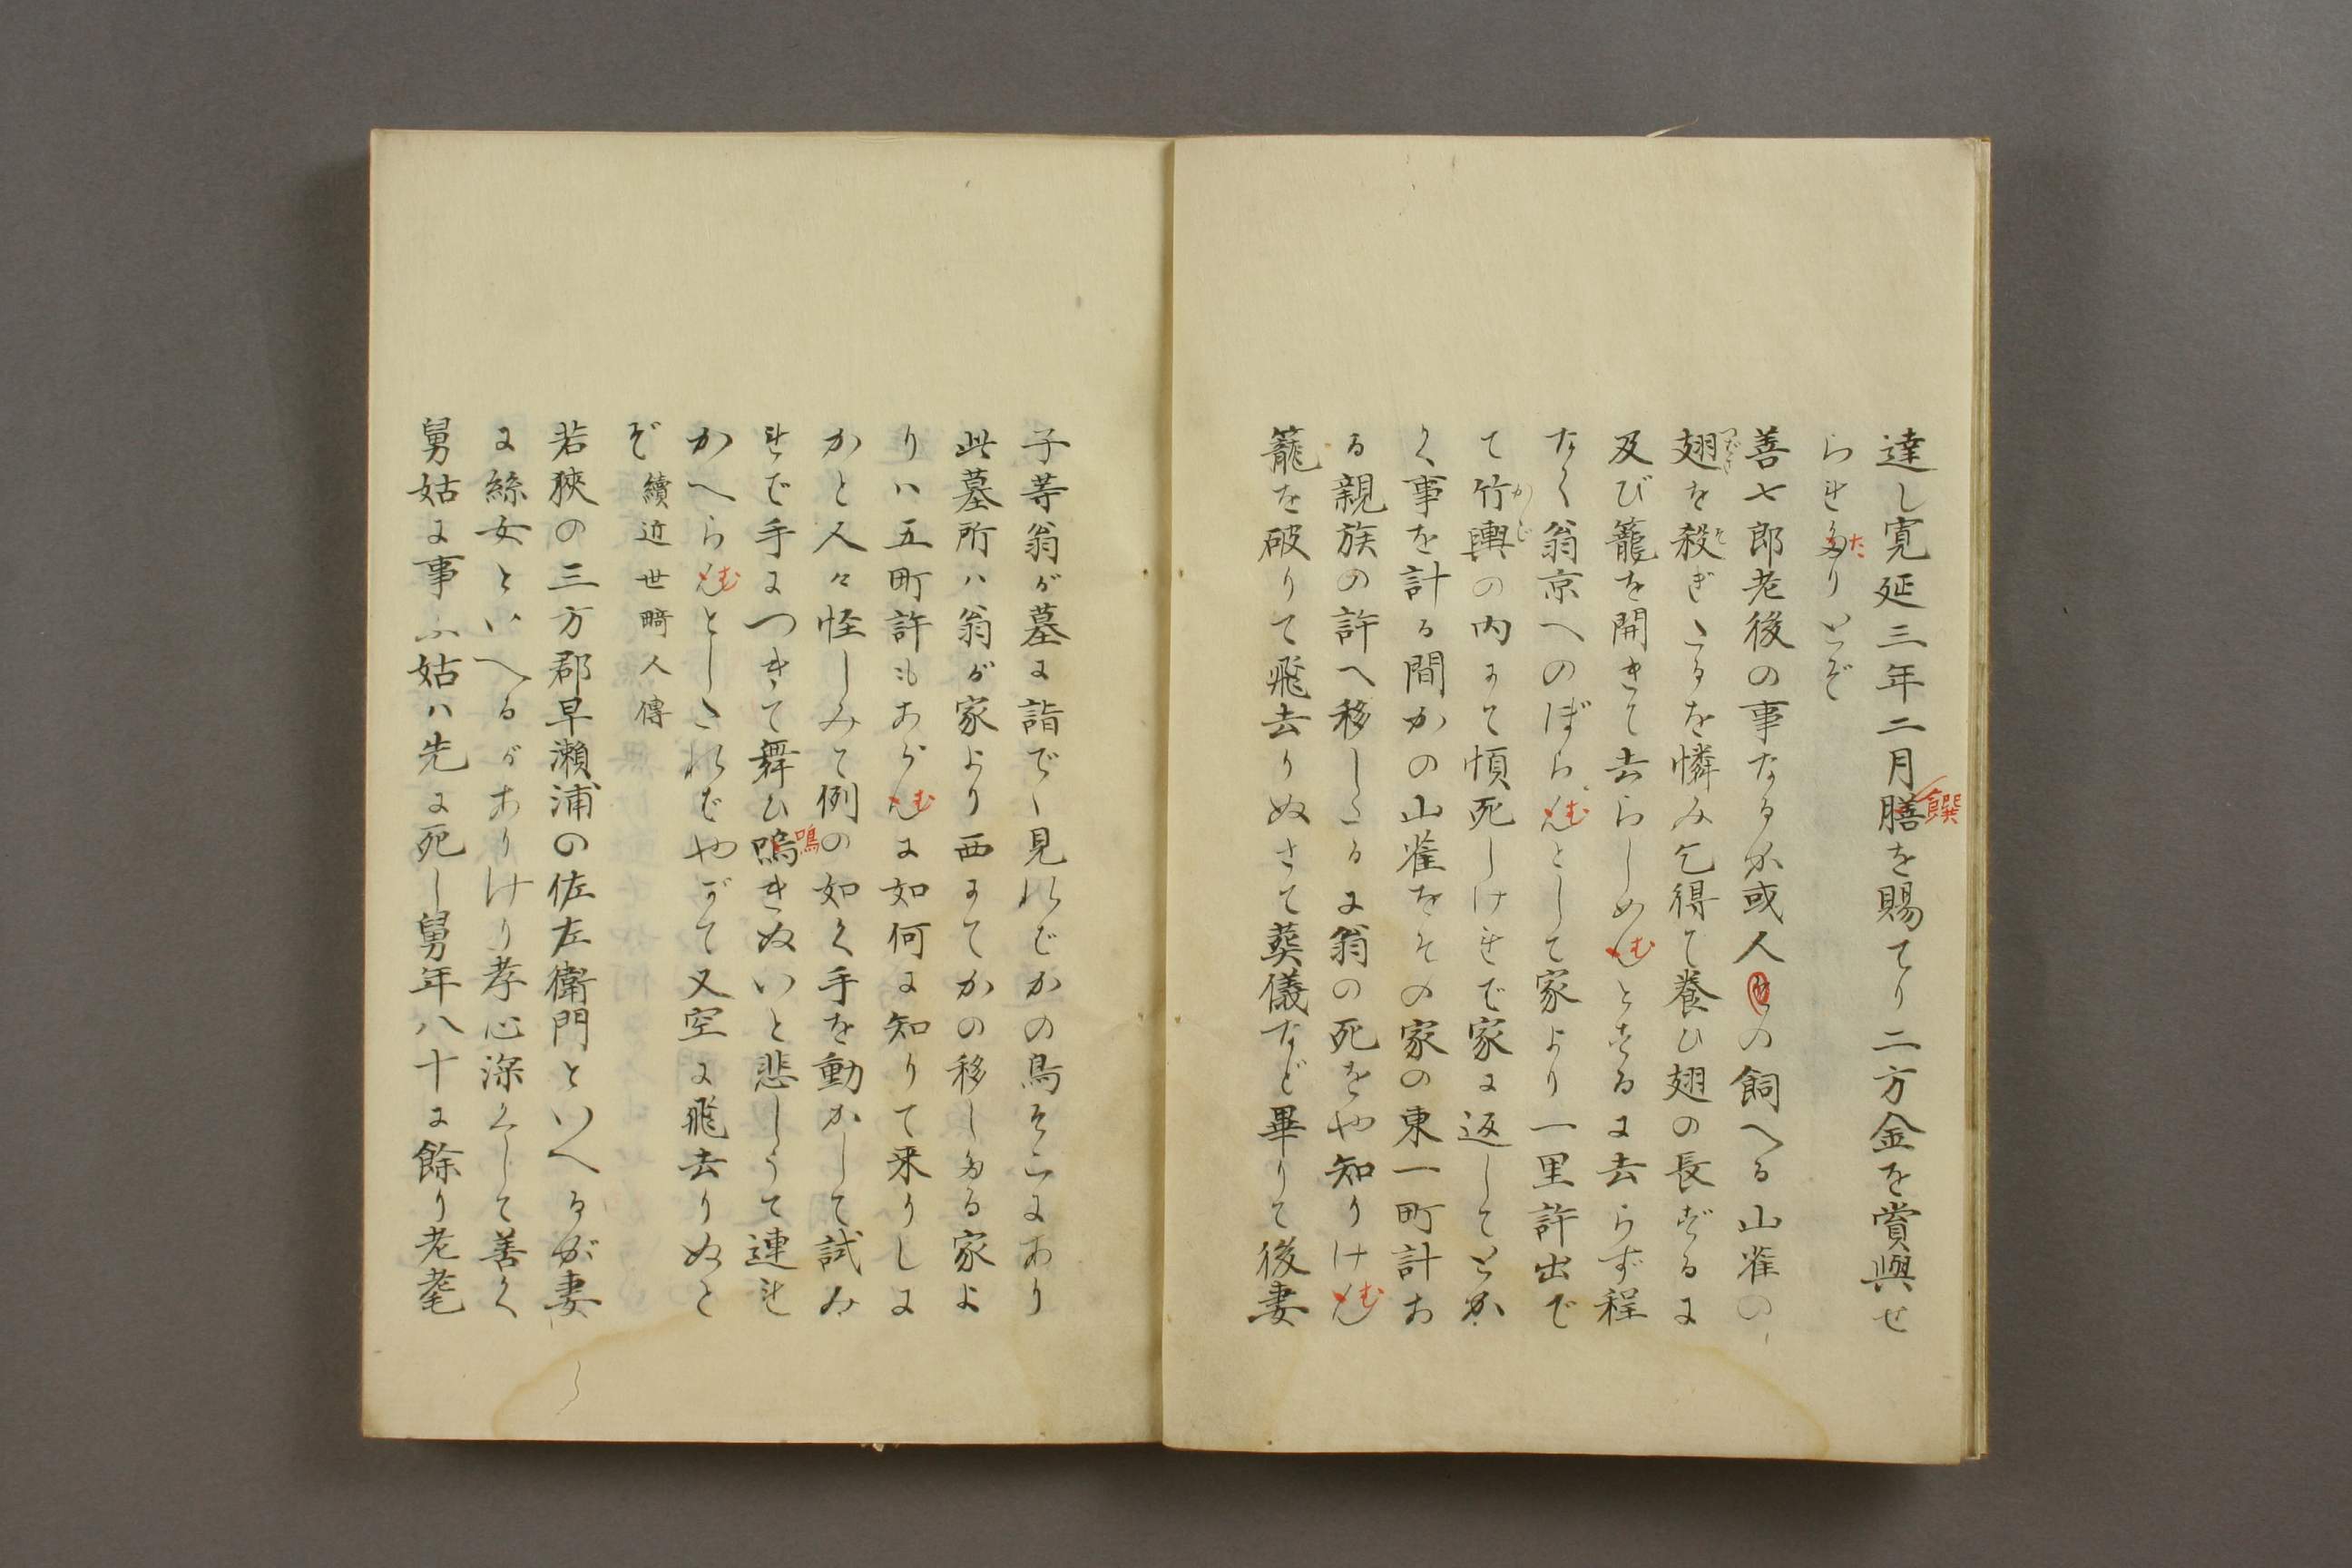 達し寛延三年二月膳を賜てり二方金を賞與せ
饌
られたりとぞ
た
善七郎老後の事なるが或人の飼へる山雀の
翅を殺ぎたるを憐み乞得て養ひ翅の長ずるに
つばさ
そ
及び籠を開きて去らしめんとするに去らず程
む
なく翁京へのぼらんとして家より一里許出で
む
て竹輿の内にて頓死しければ家に返してとか
かご
く事を計る間かの山雀をその家の東一町計お
る親族の許へ移したるに翁の死をや知りけん
む
籠を破りて飛去りぬさて葬儀など畢りて後妻
子等翁が墓に詣でゝ見ればかの鳥そこにあり
此墓所ハ翁が家より西にてかの移したる家よ
りハ五町許もあらんに如何に知りて来りしに
む
かと人々怪しみて例の如く手を動かして試み
れば手につきて舞ひ嗚きぬいと悲しうて連れ
鳴
かへらんとしたればやがて又空に飛去りぬと
む
ぞ 續近世畸人傳
若狹の三方郡早瀬浦の佐左衛門といへるが妻
に絲女といへるがありけり孝心深くして善く
舅姑に事ふ姑ハ先に死し舅年八十に餘り老耄